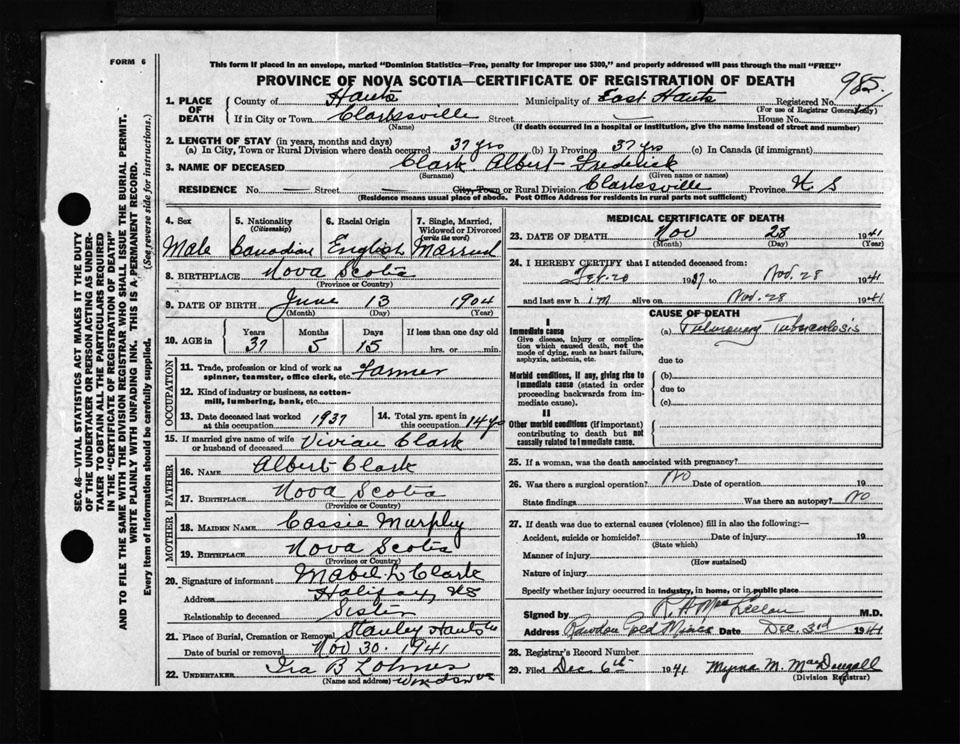 FORM 6
This form if placed in an envelope, marked "Dominion Statistics—Free, penalty for improper use $300," and properly addressed will pass through the mail "FREE"
PROVINCE OF NOVA SCOTIA—CERTIFICATE OF REGISTRATION OF DEATH
985
1. PLACE OF DEATH
County of Hants Municipality of East Hants Registered No.
(For use of Registrar General only)
If in City or Town Clarksville Street — House No.
(Name) (If death occurred in a hospital or institution, give the name instead of street and number)
2. LENGTH OF STAY (in years, months and days)
(a) In City, Town or Rural Division where death occurred 37 yrs (b) In Province 37 yrs (c) In Canada (if immigrant)
3. NAME OF DECEASED Clark Albert Frederick
(Surname) (Given name or names)
RESIDENCE No. — Street — City, Town or Rural Division Clarksville Province N S
(Residence means usual place of abode. Post Office Address for residents in rural parts not sufficient)
SEC. 46—VITAL STATISTICS ACT MAKES IT THE DUTY
OF THE UNDERTAKER OR PERSON ACTING AS UNDER-
TAKER TO OBTAIN ALL THE PARTICULARS REQUIRED
IN THE "CERTIFICATE OF REGISTRATION OF DEATH"
AND TO FILE THE SAME WITH THE DIVISION REGISTRAR WHO SHALL ISSUE THE BURIAL PERMIT.
WRITE PLAINLY WITH UNFADING INK. THIS IS A PERMANENT RECORD.
Every item of information should be carefully supplied. (See reverse side for instructions.)
4. Sex 5. Nationality (Citizenship) 6. Racial Origin 7. Single, Married, Widowed or Divorced (write the word)
Male Canadian English Married
8. BIRTHPLACE Nova Scotia
(Province or Country)
9. DATE OF BIRTH June 13 1904
(Month) (Day) (Year)
10. AGE in Years Months Days If less than one day old
37 5 15 hrs. or min.
OCCUPATION
11. Trade, profession or kind of work as
spinner, teamster, office clerk, etc. Farmer
12. Kind of industry or business, as cotton-
mill, lumbering, bank, etc.
13. Date deceased last worked
at this occupation 1937
14. Total yrs. spent in
this occupation 14 yrs
15. If married give name of wife
or husband of deceased Vivian Clark
FATHER
16. NAME Albert Clark
17. BIRTHPLACE Nova Scotia
(Province or Country)
MOTHER
18. MAIDEN NAME Cassie Murphy
19. BIRTHPLACE Nova Scotia
(Province or Country)
20. Signature of informant Mabel L Clark
Address Halifax, NS
Relationship to deceased Sister
21. Place of Burial, Cremation or Removal Stanley Hants Co
Date of burial or removal Nov 30. 1941
22. UNDERTAKER Ira B Lohnes
(Name and address) Windsor NS
MEDICAL CERTIFICATE OF DEATH
23. DATE OF DEATH Nov 28 1941
(Month) (Day) (Year)
24. I HEREBY CERTIFY that I attended deceased from:
Feb. 20 1937 to Nov. 28 1941
and last saw h im alive on Nov. 28 1941
CAUSE OF DEATH
I
Immediate cause (a) Pulmonary Tuberculosis
Give disease, injury or complica-
tion which caused death, not the
mode of dying, such as heart failure,
asphyxia, asthenia, etc.
due to
Morbid conditions, if any, giving rise to
immediate cause (stated in order
proceeding backwards from im-
mediate cause).
(b)
due to
(c)
II
Other morbid conditions (if important)
contributing to death but not
causally related to immediate cause.
25. If a woman, was the death associated with pregnancy?
26. Was there a surgical operation? No Date of operation 19
State findings Was there an autopsy? No
27. If death was due to external causes (violence) fill in also the following:—
Accident, suicide or homicide? Date of injury 19
(State which)
Manner of injury
(How sustained)
Nature of injury
Specify whether injury occurred in industry, in home, or in public place
Signed by R. A. MacLellan M.D.
Address Rawdon Gold Mines Date Dec. 3rd 1941
28. Registrar's Record Number
29. Filed Dec 6th 1941 Myrna M. MacDougall
(Division Registrar)